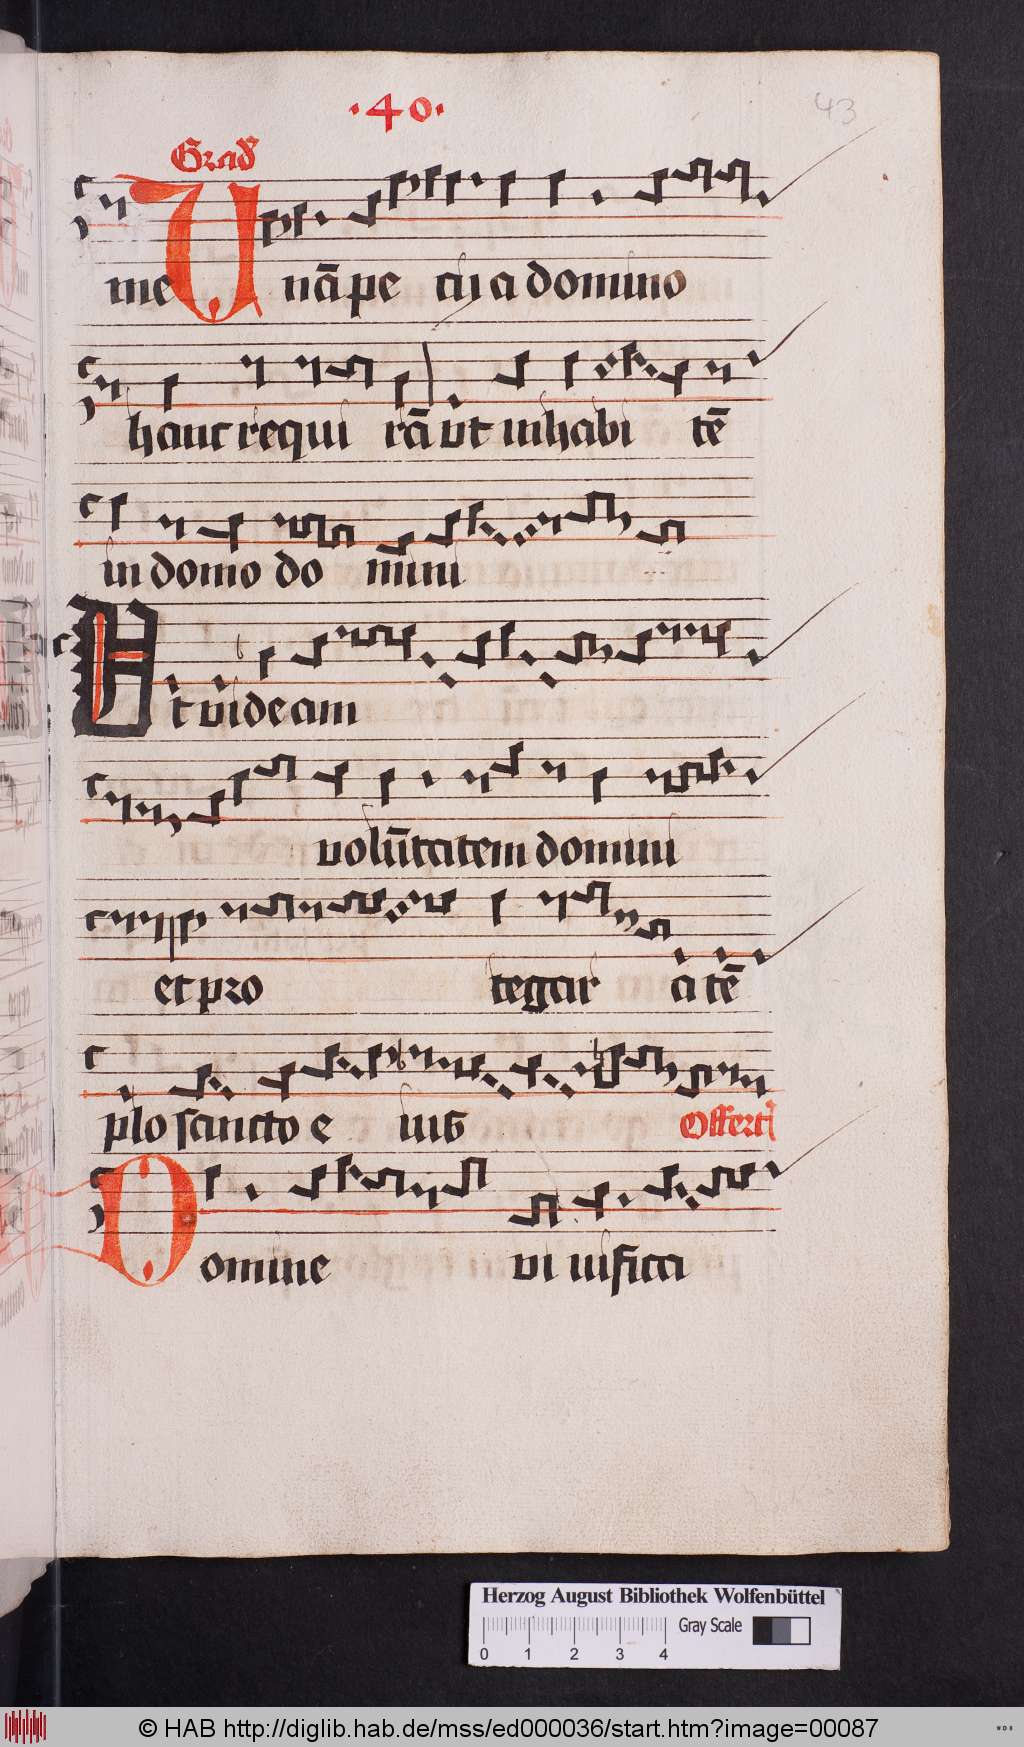 ·40·
43
Grad᷎
me Unā pe tij a domino
hanc requi rā ut inhabi tē
in domo do mini
Et videam
volūtatem domini
et pro tegar a tē
plo sancto e ius
Offert
Domine vi vifica
Herzog August Bibliothek Wolfenbüttel
Gray Scale
0 1 2 3 4
© HAB http://diglib.hab.de/mss/ed000036/start.htm?image=00087
WDB